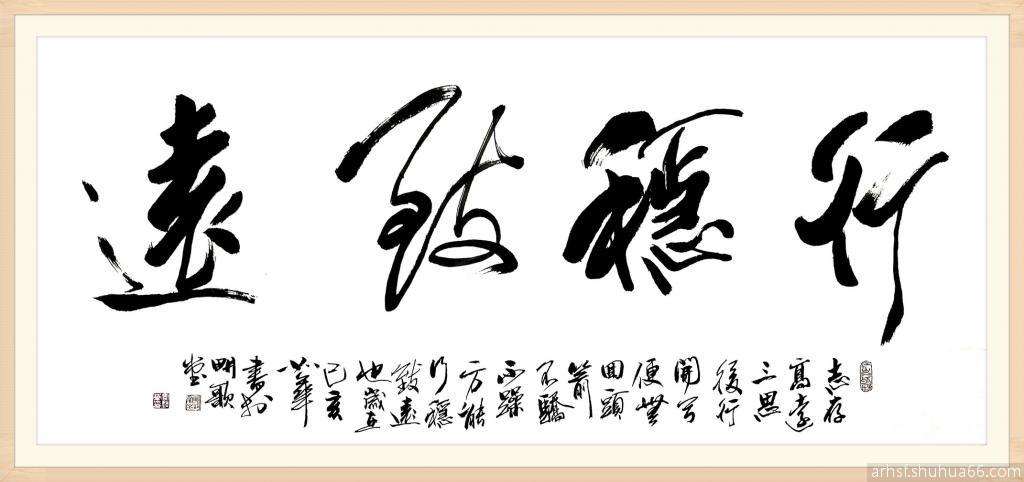 行穩致遠
志存
高遠
三思
後行
開弓
便無
回頭
箭
不驕
不躁
方能
行穩
致遠
也歲在
己亥
華
書於
明歌
堂
arhsf.shuhua66.com